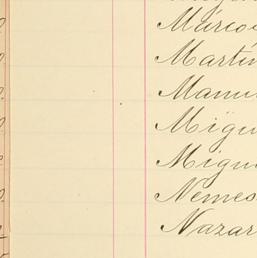 Márco
Martín
Manu
Migu
Migu
Nemes
Nazar